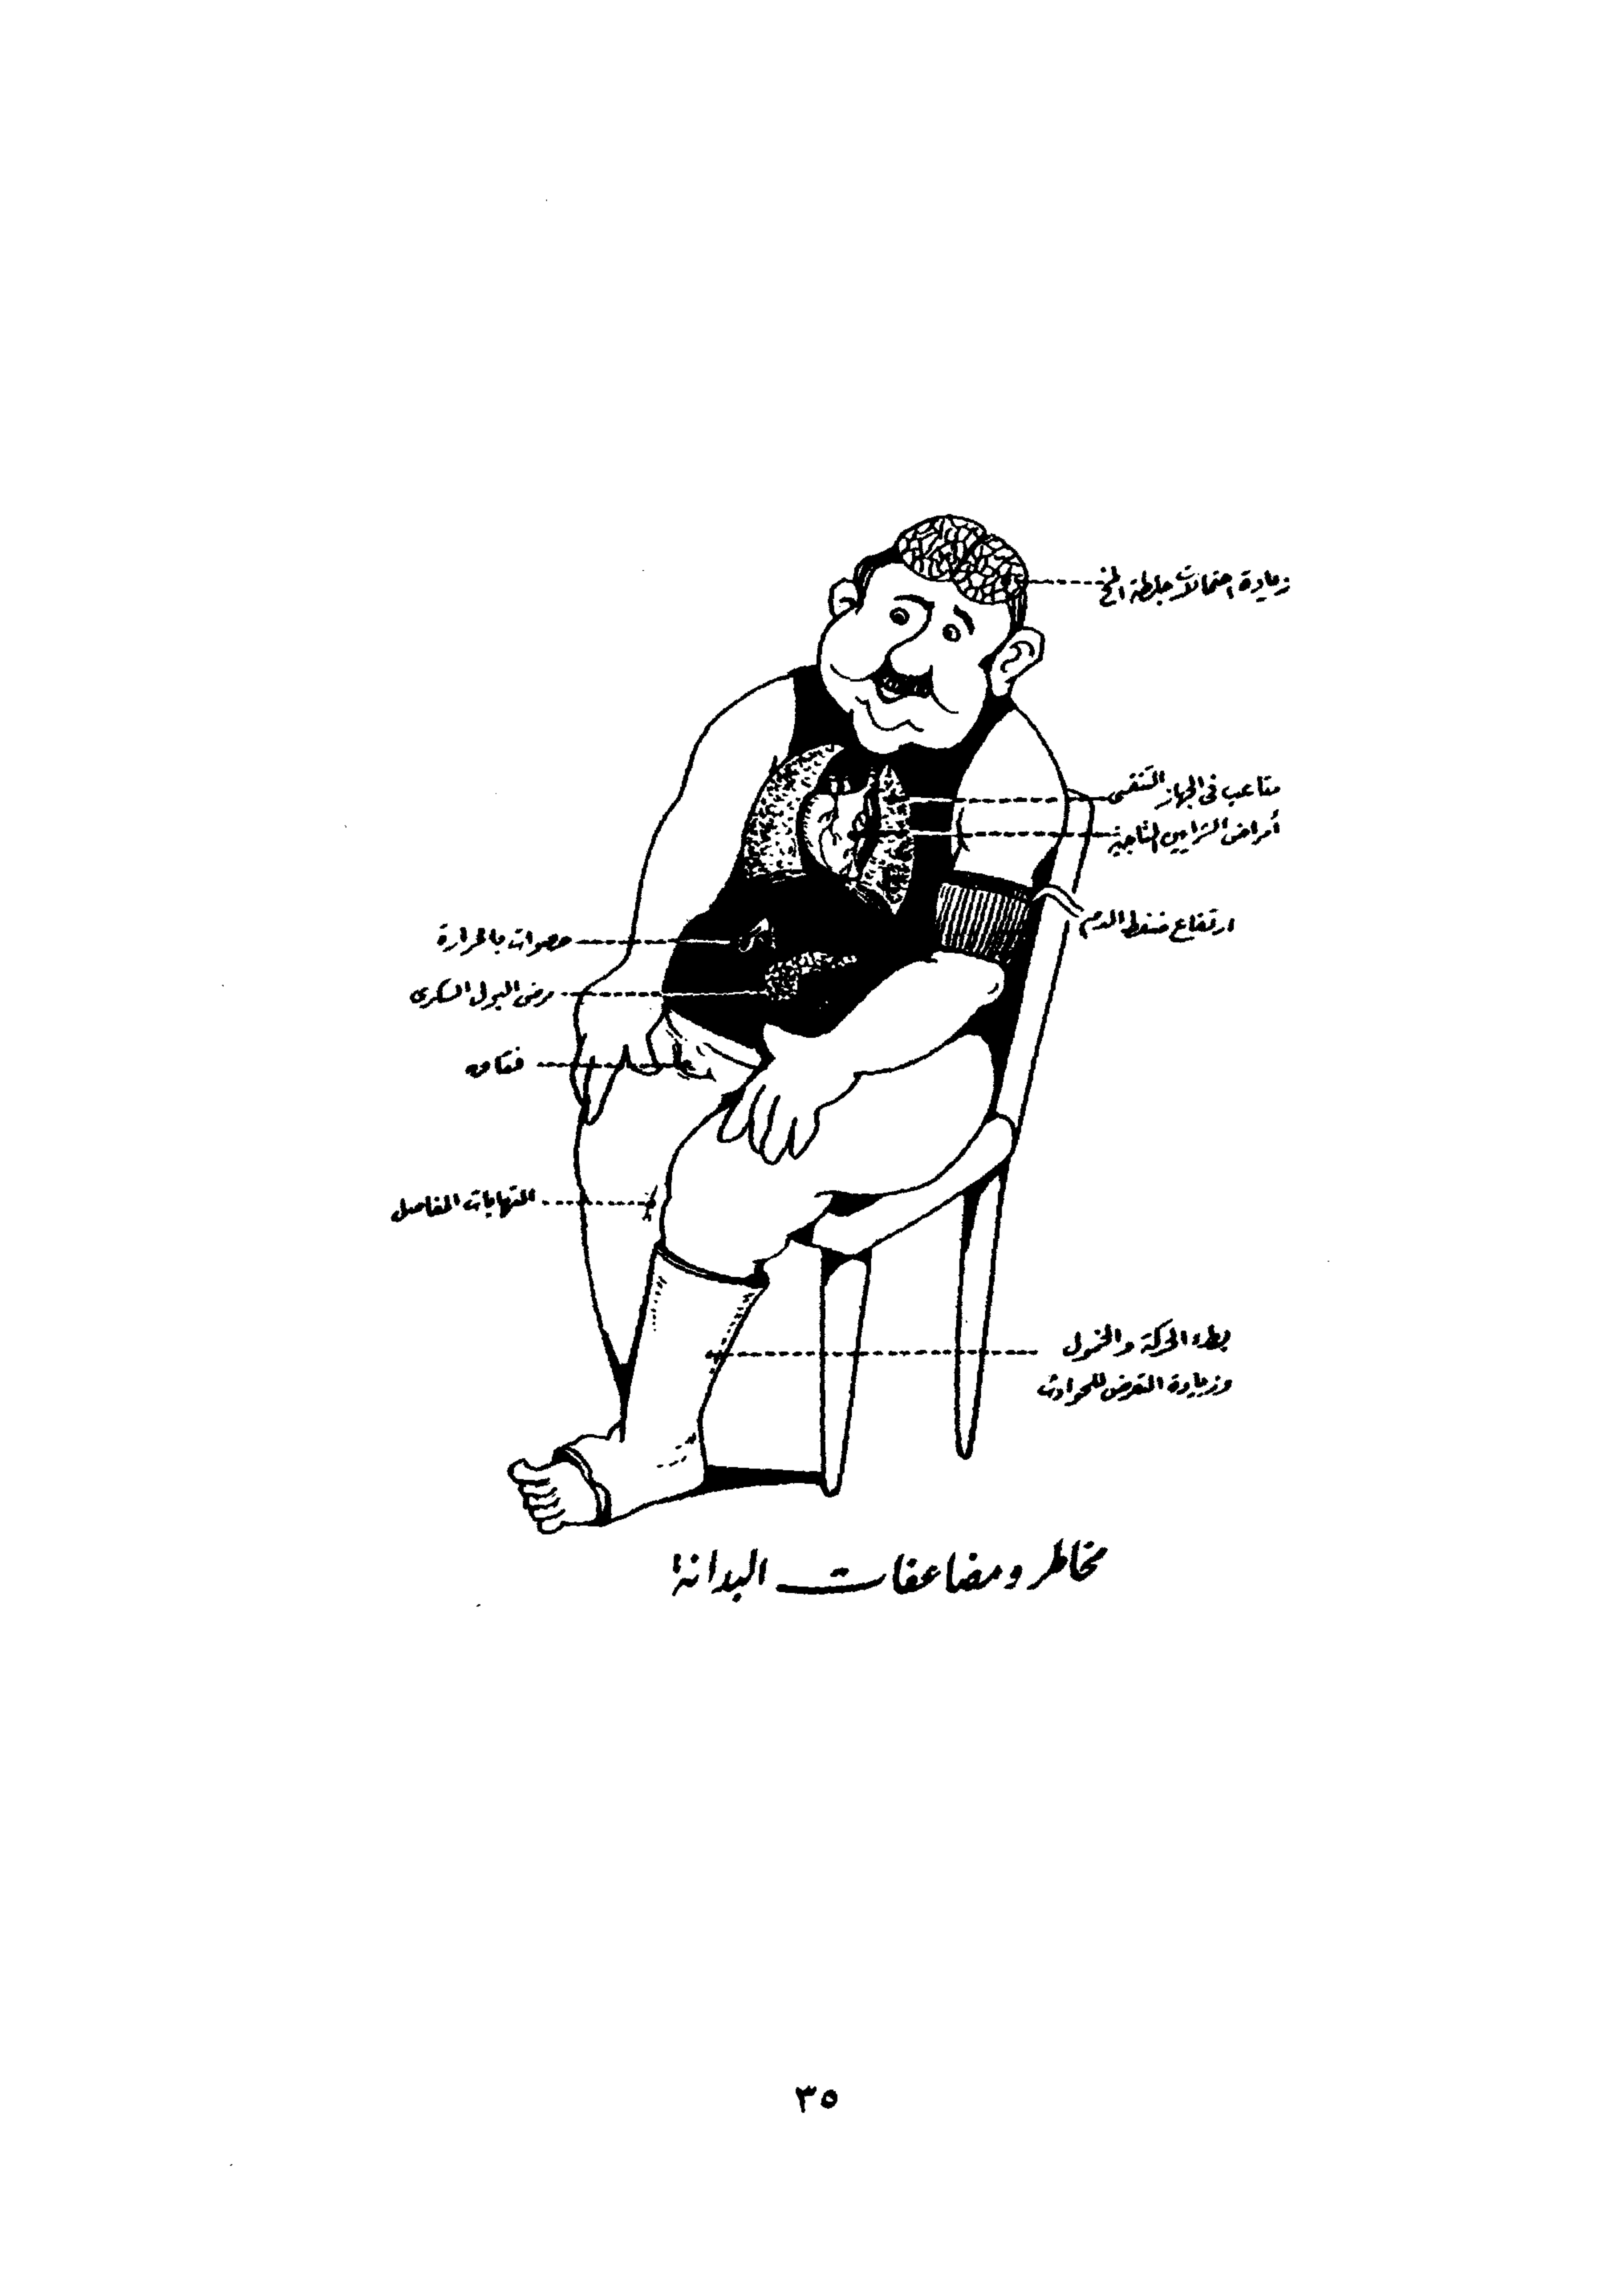 زيادة احتمالات جلطة المخ
متاعب فى الجهاز التنفسى
أمراض الشرايين التاجية
ارتفاع ضغط الدم
حصوات بالمرارة
مرض البول السكرى
فتاق
التهابات المفاصل
بطء الحركة والخمول
وزيادة التعرض للحوادث
مخاطر ومضاعفات البدانة
٣٥